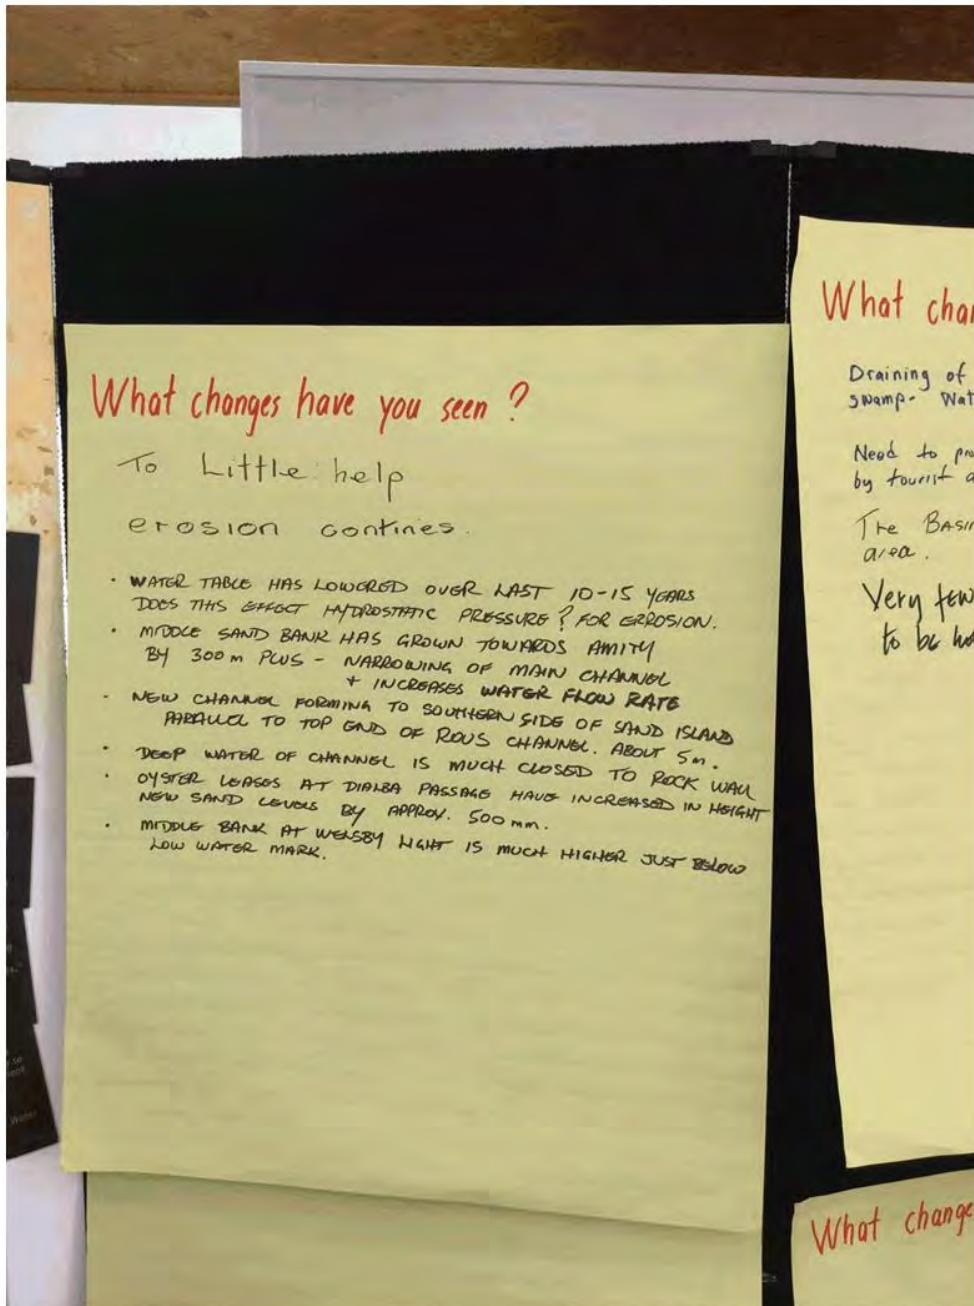 What changes have you seen ?
To Little help
erosion contines.
· WATER TABLE HAS LOWERED OVER LAST 10-15 YEARS
DOES THIS EFFECT HYDROSTATIC PRESSURE ? FOR ERROSION.
· MIDDLE SAND BANK HAS GROWN TOWARDS AMITY
BY 300m PLUS - NARROWING OF MAIN CHANNEL
+ INCREASES WATER FLOW RATE
- NEW CHANNEL FORMING TO SOUTHERN SIDE OF SAND ISLAND
PARALLEL TO TOP END OF ROUS CHANNEL. ABOUT 5m.
· DEEP WATER OF CHANNEL IS MUCH CLOSED TO ROCK WALL
· OYSTER LEASES AT DIALBA PASSAGE HAVE INCREASED IN HEIGHT
NEW SAND LEVELS BY APPROX. 500mm.
· MIDDLE BANK AT WELSBY LIGHT IS MUCH HIGHER JUST BELOW
LOW WATER MARK.
What chan
Draining of
swamp- Wat
Need to pro
by tourist a
The BASIN
area.
Very few
to be
What change
Water